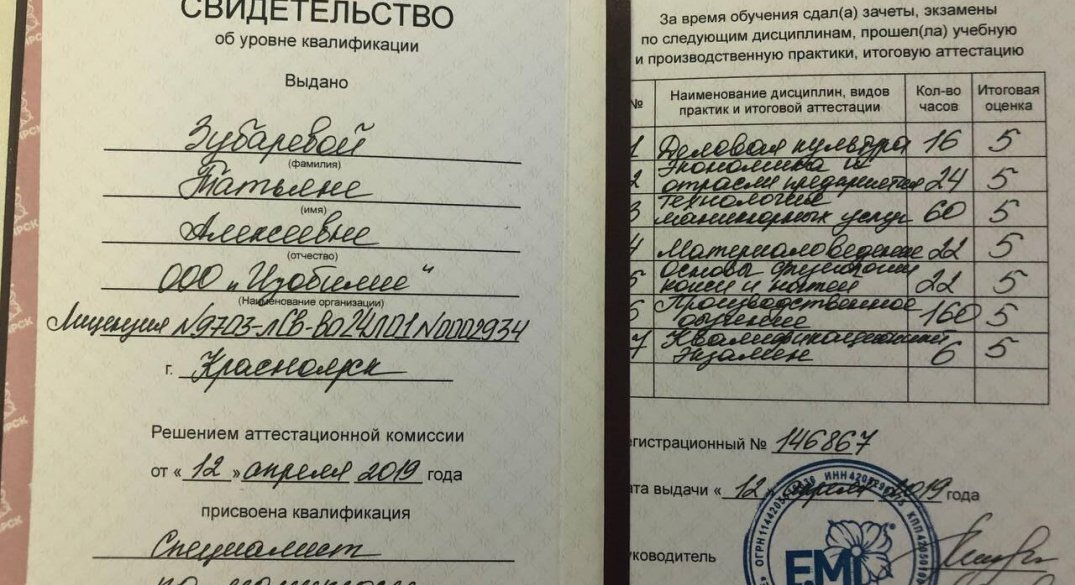 СВИДЕТЕЛЬСТВО
об уровне квалификации
Выдано
Зубаревой
(фамилия)
Татьяне
(имя)
Алексеевне
(отчество)
ООО „Изобилие“
(Наименование организации)
Лицензия №9703-л СВ-ВО 24Л01 №0002934
г. Красноярск
Решением аттестационной комиссии
от «12» апреля 2019 года
присвоена квалификация
Специалист
по
За время обучения сдал(а) зачеты, экзамены
по следующим дисциплинам, прошел(ла) учебную
и производственную практики, итоговую аттестацию
№ Наименование дисциплин, видов практик и итоговой аттестации Кол-во часов Итоговая оценка
1 Деловая культура 16 5
2 Экономика и отрасли предприятия 24 5
3 Технология маникюрных услуг 60 5
4 Материаловедение 22 5
5 Основы кожи и ногтей 22 5
6 Производственное 160 5
7 Квалификационный экзамен 6 5
егистрационный № 146867
ата выдачи «12 апреля 2019 года
уководитель
EMI